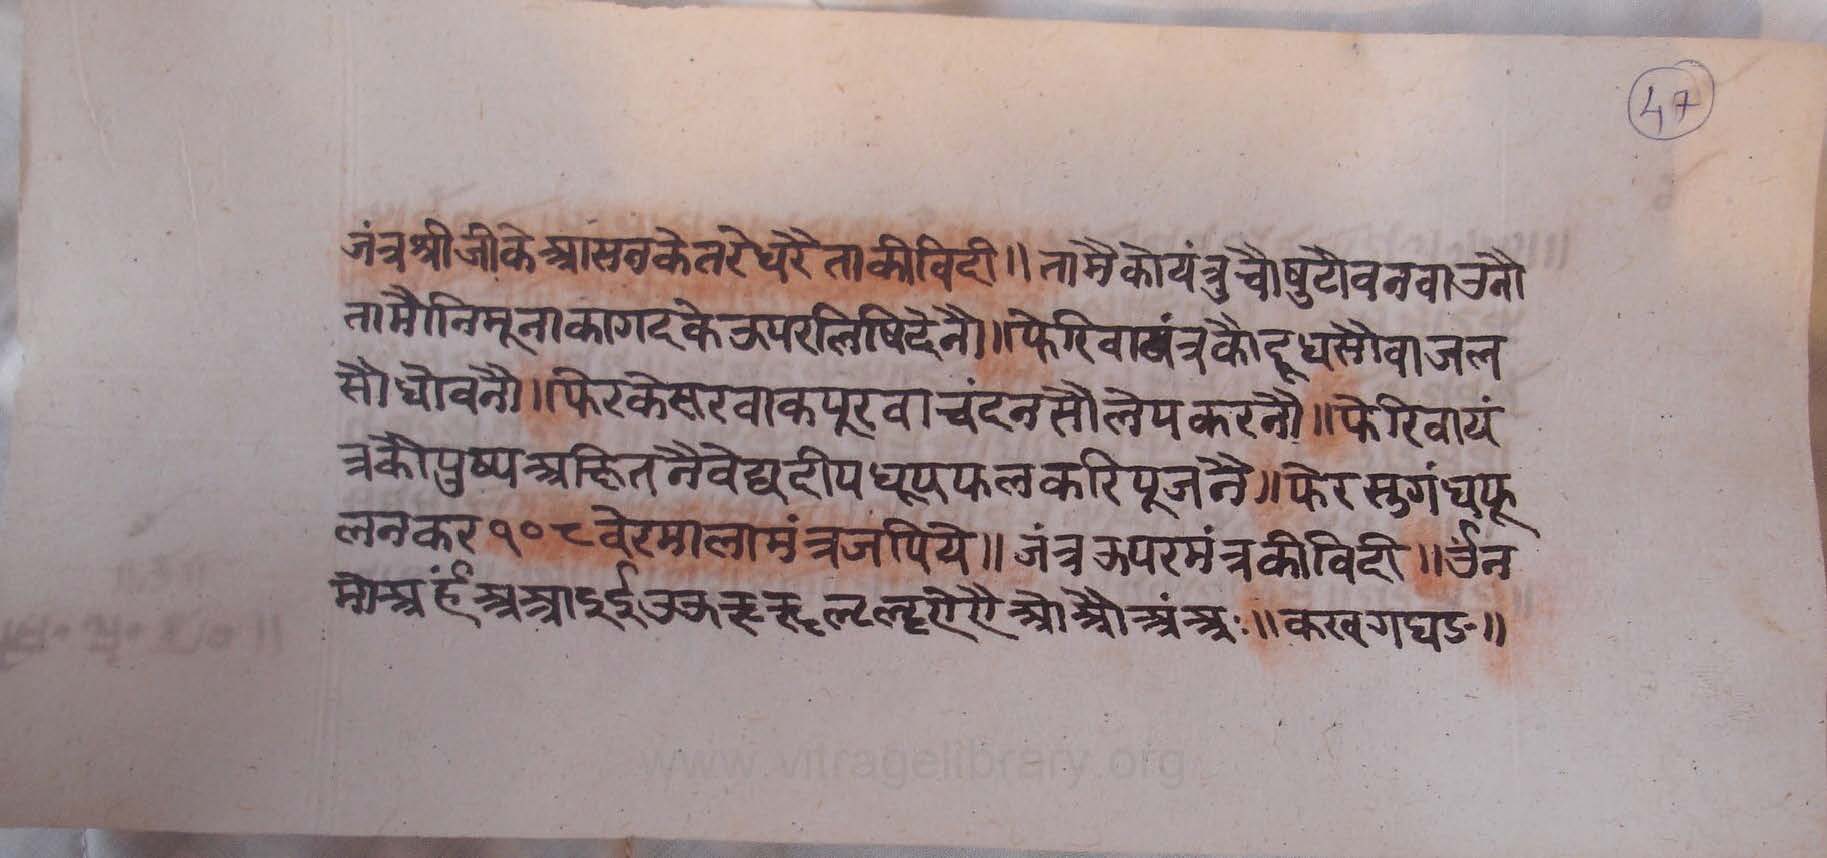 47
जंत्र श्री जी के आसन के तरे धरै ताकी विदी ॥ तामैकोयंत्रु चौषुटौ वनवाउनौ
तामौ निमूना कागद के ऊपर लिषि देनौ ॥ फेरि वा यंत्र कौ दूध सौ वा जल
सौ धोवनौ ॥ फिर केसर वा कपूर वा चंदन सौ लेप करनौ ॥ फेरि वा यं
त्र कौ पुष्प अक्षित नैवेद्य दीप धूप फल करि पूजनै ॥ फेर सुगंध फू
लन कर १०८ वेर माला मंत्र जपिये ॥ जंत्र ऊपर मंत्र की विदी ॥ ॐ न
मो अर्हं अ आ इ ई उ ऊ ऋ ॠ ऌ ॡ ए ऐ ओ औ अं अः ॥ क ख ग घ ङ ॥
www.vitragelibrary.org